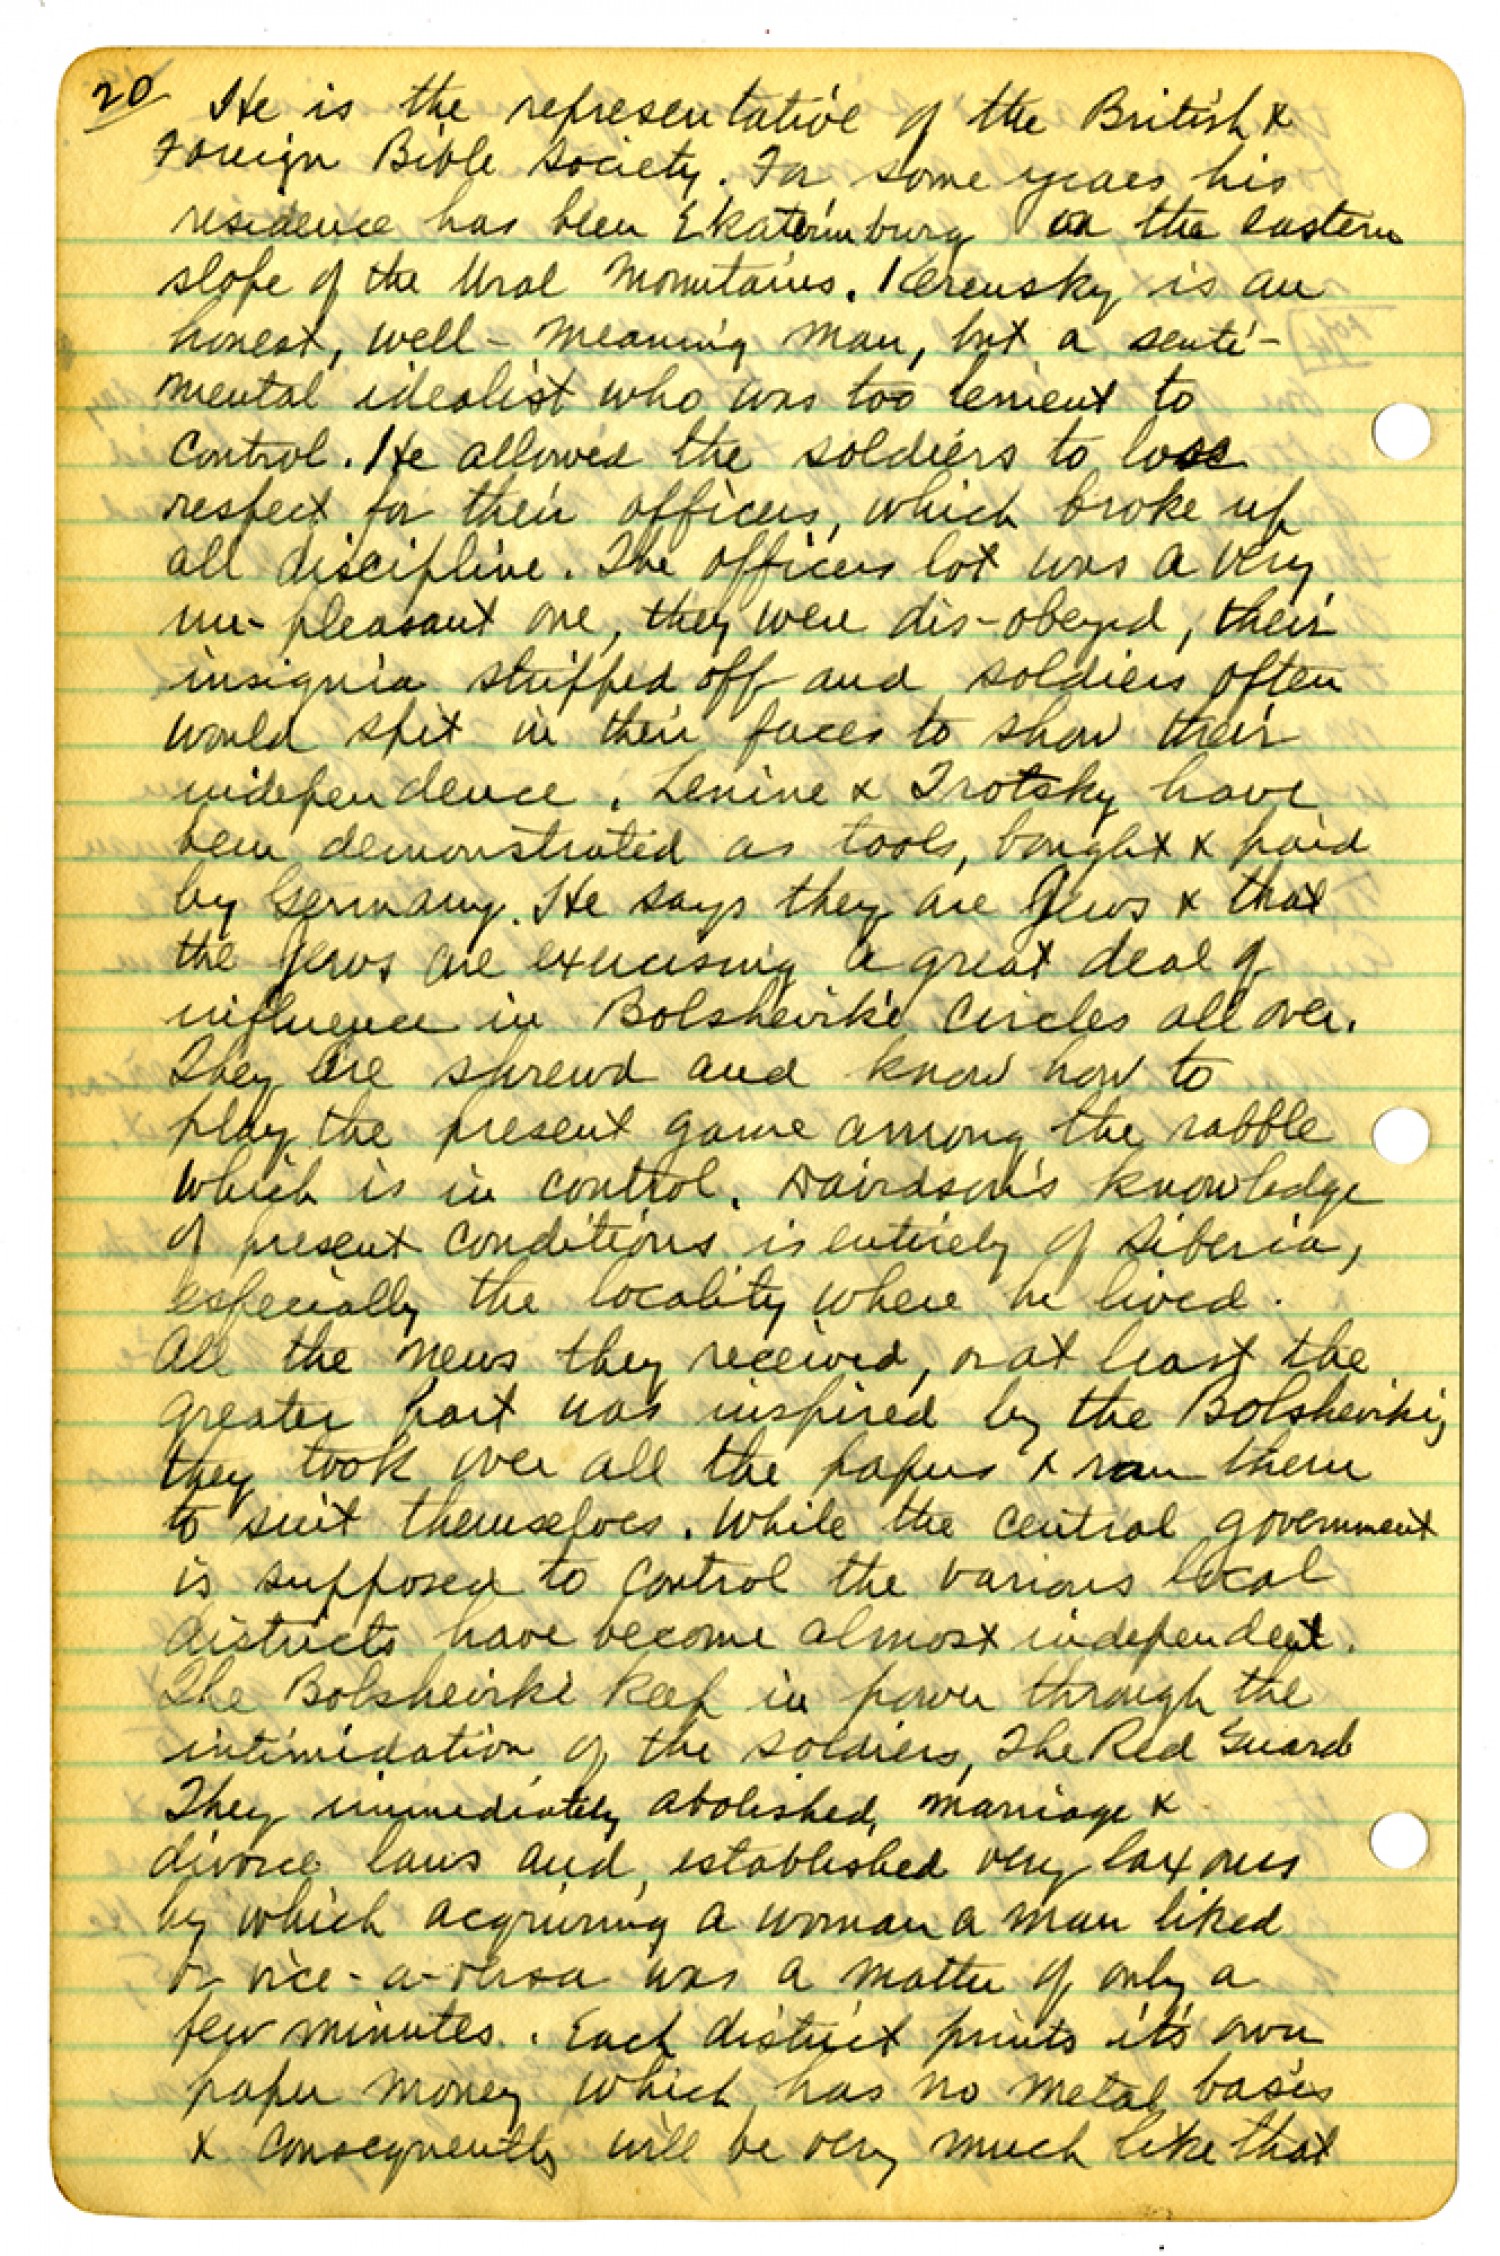 20 He is the representative of the British &
Foreign Bible Society. For some years his
residence has been Ekaterinburg on the eastern
slope of the Ural Mountains. Kerensky is an
honest, well-meaning man, but a senti-
mental idealist who was too lenient to
control. He allowed the soldiers to lose
respect for their officers, which broke up
all discipline. The officers lot was a very
un-pleasant one, they were dis-obeyed, their
insignia stripped off and soldiers often
would spit in their faces to show their
independence. Lenine & Trotsky have
been demonstrated as tools, bought & paid
by Germany. He says they are Jews & that
the Jews are exercising a great deal of
influence in Bolsheviki circles all over.
They are shrewd and know how to
play the present game among the rabble
which is in control. Davidson's knowledge
of present conditions is entirely of Siberia,
especially the locality where he lived.
All the news they received, or at least the
greater part was inspired by the Bolsheviki;
they took over all the papers & ran them
to suit themselves. While the central government
is supposed to control the various local
districts have become almost independent.
The Bolsheviki keep in power through the
intimidation of the soldiers, The Red Guard
They immediately abolished, marriage &
divorce laws and, established very lax ones
by which acquiring a woman a man liked
or vice-a-versa was a matter of only a
few minutes. Each district prints it's own
paper money which has no metal basis
& consequently will be very much like that